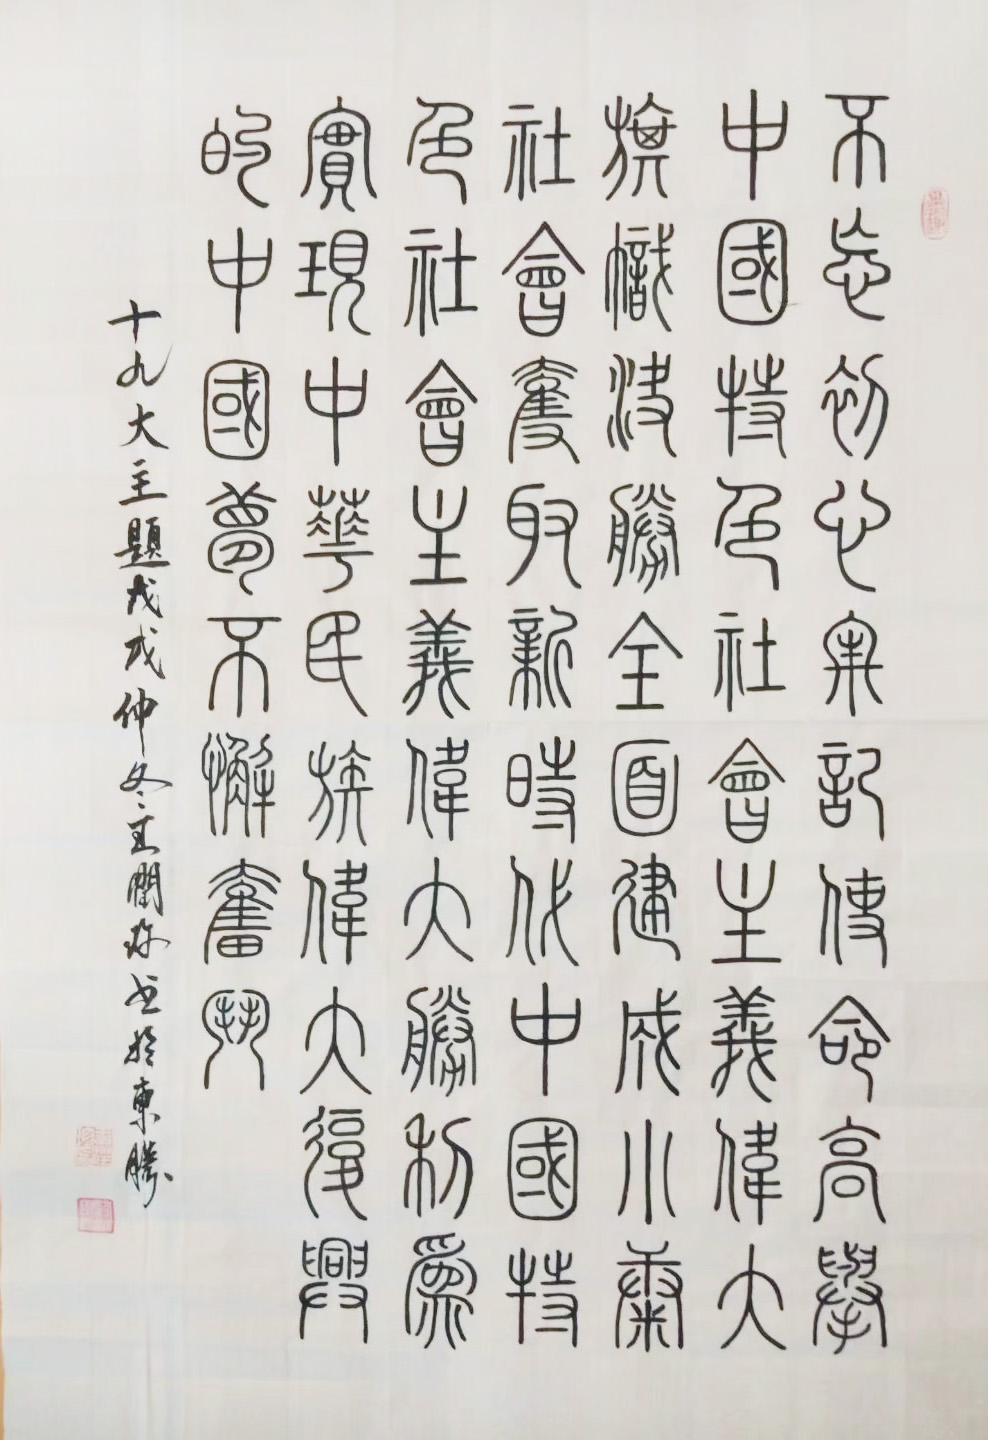 不忘初心牢記使命高舉
中國特色社會主義偉大
旗幟決勝全面建成小康
社會奪取新時代中國特
色社會主義偉大勝利爲
實現中華民族偉大復興
的中國夢不懈奮鬥
十九大主題戊戌仲冬王書於東勝